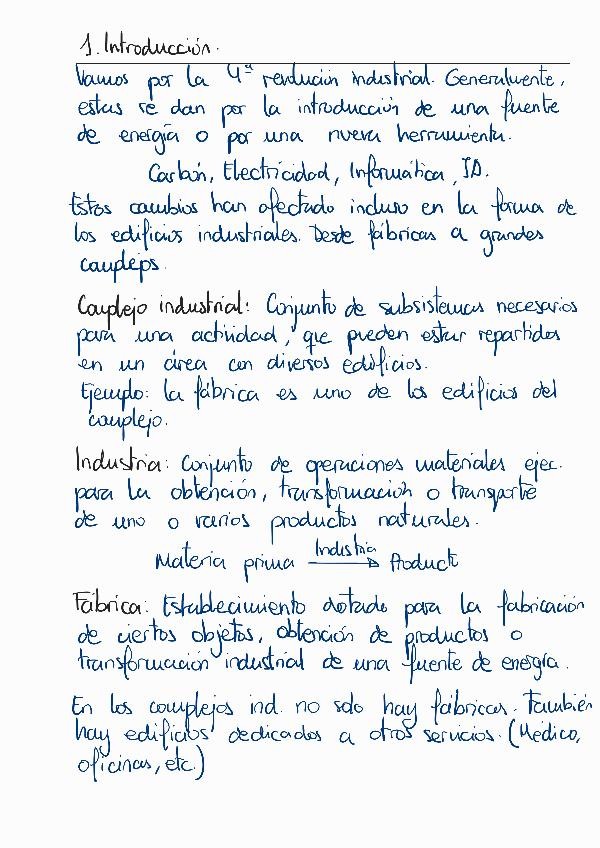 1. Introducción.
Vamos por la 4ª revolución industrial. Generalmente,
estas se dan por la introducción de una fuente
de energía o por una nueva herramienta.
Carbón, Electricidad, Informática, ID.
Estos cambios han afectado incluso en la forma de
los edificios industriales. Desde fábricas a grandes
complejos.
Complejo industrial: Conjunto de subsistemas necesarios
para una actividad, que pueden estar repartidos
en un área con diversos edificios.
Ejemplo: la fábrica es uno de los edificios del
complejo.
Industria: Conjunto de operaciones materiales ejec.
para la obtención, transformación o transporte
de uno o varios productos naturales.
Materia prima Industria → Producto
Fábrica: Establecimiento dotado para la fabricación
de ciertos objetos, obtención de productos o
transformación industrial de una fuente de energía.
En los complejos ind. no solo hay fábricas. También
hay edificios dedicados a otros servicios. (Médico,
oficinas, etc.)